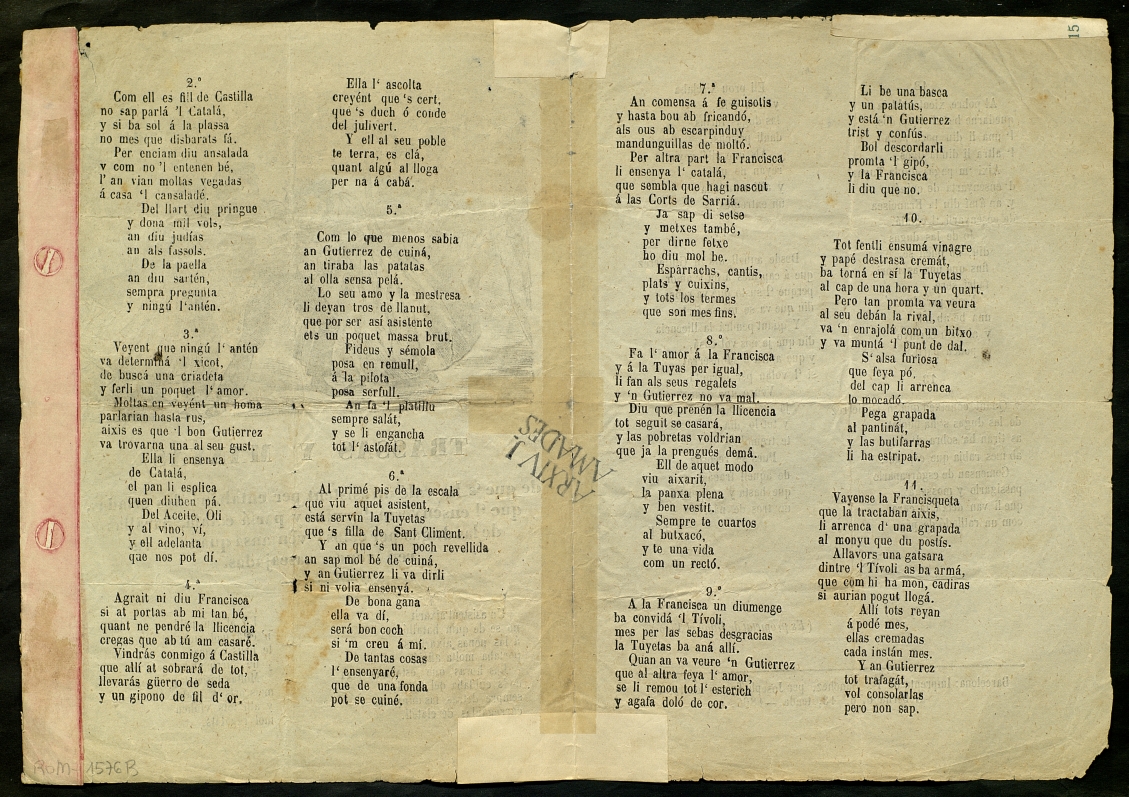 2.ª
Com ell es fill de Castilla
no sap parlá 'l Catalá,
y si ba sol á la plassa
no mes que disbarats fá.
Per enciam diu ansalada
y com no 'l entenen bé,
l' an vían moltas vegadas
á casa 'l cansaladé.
Del llart diu pringue
y dona mil vols,
an diu judías
an als fassols.
De la paella
an diu sartén,
sempra pregunta
y ningú l'antén.
3.ª
Veyent que ningú l' antén
va determiná 'l xicot,
de buscá una criadeta
y ferli un poquet l'amor.
Moltas en veyént un homa
parlarian hasta rus,
aixis es que 'l bon Gutierrez
va trovarna una al seu gust.
Ella li ensenya
de Catalá,
el pan li esplica
quen diuhen pá.
Del Aceite, Oli
y al vino, ví,
y ell adelanta
que nos pot dí.
4.ª
Agrait ni diu Francisca
si at portas ab mi tan bé,
quant ne pendré la llicencia
cregas que ab tú am casaré.
Vindrás conmigo á Castilla
que allí at sobrará de tot,
llevarás güerro de seda
y un gipono de fil d' or,
Ella l' ascolta
creyént que 's cert.
que 's duch ó conde
del julivert.
Y ell al seu poble
te terra, es clá,
quant algú al lloga
per na á cabá.
5.ª
Com lo que menos sabia
an Gutierrez de cuiná,
an tiraba las patatas
al olla sensa pelá.
Lo seu amo y la mestresa
li deyan tros de llanut,
que por ser así asistente
ets un poquet massa brut.
Fideus y sémola
posa en remull,
á la pilota
posa serfull.
An fa 'l platillu
sempre salát,
y se li engancha
tot l' astofát.
6.ª
Al primé pis de la escala
que viu aquet asistent,
está servín la Tuyetas
que 's filla de Sant Climent.
Y an que 's un poch revellida
an sap mol bé de cuiná,
y an Gutierrez li va dirli
si ni volia ensenyá.
De bona gana
ella va dí,
será bon coch
si 'm creu á mí.
De tantas cosas
l' ensenyaré,
que de una fonda
pot se cuiné.
7.ª
An comensa á fe guisotis
y hasta bou ab fricandó,
als ous ab escarpinduy
mandunguillas de moltó.
Per altra part la Francisca
li ensenya l' catalá,
que sembla que hagi nascut
á las Corts de Sarriá.
Ja sap di setse
y metxes també,
per dirne fetxe
ho diu mol be.
Esparrachs, cantis,
plats y cuixins,
y tots los termes
que son mes fins.
8.ª
Fa l' amor á la Francisca
y á la Tuyas per igual,
li fan als seus regalets
y 'n Gutierrez no va mal.
Diu que prenén la llicencia
tot seguit se casará,
y las pobretas voldrian
que ja la prengués demá.
Ell de aquet modo
viu aixarit,
la panxa plena
y ben vestit.
Sempre te cuartos
al butxacó,
y te una vida
com un rectó.
9.ª
A la Francisca un diumenge
ba convidá 'l Tívoli,
mes per las sebas desgracias
la Tuyetas ba aná allí.
Quan an va veure 'n Gutierrez
que al altra feya l' amor,
se li remou tot l' esterich
y agafa doló de cor.
Li be una basca
y un patatús,
y está 'n Gutierrez
trist y confús.
Bol descordarli
promta 'l gipó,
y la Francisca
li diu que no.
10.
Tot fentli ensumá vinagre
y papé destrasa cremát,
ba torná en sí la Tuyetas
al cap de una hora y un quart.
Pero tan promta va veura
al seu debán la rival,
va 'n enrajolá com un bitxo
y va muntá 'l punt de dal.
S' alsa furiosa
que feya pó,
del cap li arrenca
lo mocadó.
Pega grapada
al pantinát,
y las butifarras
li ha estripat.
11.
Vayense la Francisqueta
que la tractaban aixis,
li arrenca d' una grapada
al monyu que du postís.
Allavors una gatsara
dintre 'l Tívoli as ba armá,
que com hi ha mon, cadiras
si aurian pogut llogá.
Allí tots reyan
á podé mes,
ellas cremadas
cada instán mes.
Y an Gutierrez
tot trafagát,
vol consolarlas
pero non sap.
ARXIV J.
AMADES
15
ROM-1576B